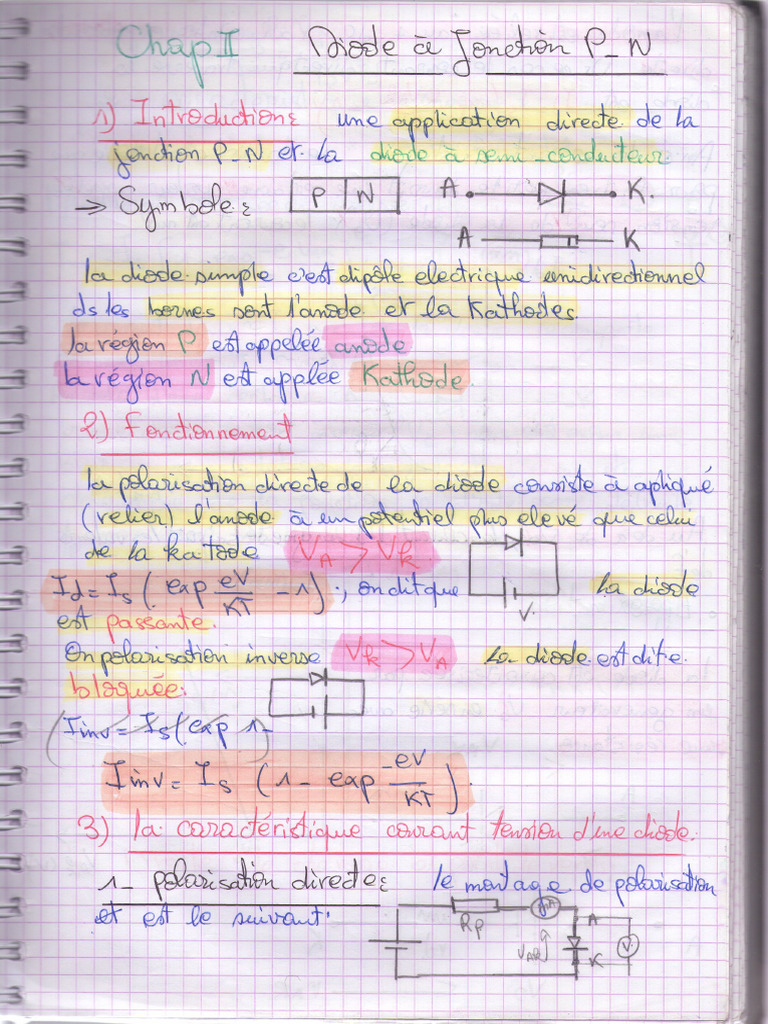 Chap II Diode à Jonction P_N
1) Introduction: une application directe de la
jonction P_N et la diode à semi-conducteur.
→ Symbole: P N A K.
A K
la diode simple c'est dipôle electrique unidirectionnel
ds les bornes sont l'anode et la Kathodes.
la région P est appelée anode
la région N est applée Kathode
2) Fonctionnement
la polarisation directe de la diode consiste à apliqué
(relier) l'anode à un potentiel plus elevé que celui
de la katode VA > Vk
Id = Is ( exp eV/KT - 1 ) ; on dit que V. la diode
est passante.
On polarisation inverse Vk > VA La diode est dite
bloquée:
(Iinv = Is ( exp 1-
Iinv = Is ( 1 - exp -eV/KT ).
3) la caractéristique courant tension d'une diode.
1_ polarisation directe: le montage de polarisation
et est le suivant:
RP A
VAK V
K